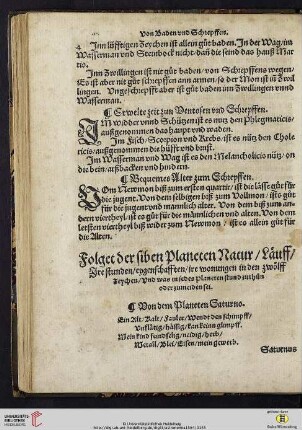 Von Baden und Schrepffen.
Inn lüfftigen Zeychen ist allein gůt baden. In der Wag/im
Wasserman und Steinbock nicht/dañ die seind das hauß Mar-
tis.
Inn Zwillingen ist nit gůt baden/von Schrepffens wegen/
Es ist aber nit gůt schrepffen ann armen/so der Mon ist in Zwil
lingen. Ungeschrepfft aber ist gůt baden im Zwillingen unnd
Wasserman.
¶ Erwelte zeit zum Ventosen und Schrepffen.
IM Widder unnd Schützen ist es nutz den Phlegmaticis/
außgenommen das haupt und waden.
Im Fisch/Scorpion und Krebs/ist es nutz den Chole-
ricis/außgenommen die hüfft und brust.
Im Wasserman und Wag ist es den Melancholicis nütz/on
die bein/arßbacken und hindern.
¶ Bequemes Alter zum Schrepffen.
VOm Newmon biß zum ersten quartir/ist die lässe gůt für
die jugent. Von dem selbigen biß zum Vollmon/ists gůt
für die jugent und mannlich alter. Von dem biß zum an-
dern viertheyl ist es gůt für die männlichen und alten. Von dem
letsten viertheyl biß wider zum Newmon/ist es allein gůt für
die Alten.
Folget der siben Planeten Natur/Läuff/
Zeit stunden/eygenschafften/ire wonungen in den zwölff
Zeychen/Und was in jedes Planeten stund zuthůn
oder zumeiden sei.
¶ Von dem Planeten Saturno.
Ein Alt/Kalt/Fauler/Wendt den schimpff/
Unflätig/hässig/kan keinn glimpff.
Mein kind feindselig/neidig/herb/
Metall/Blei/Eisen/mein gewerb.
Saturnus